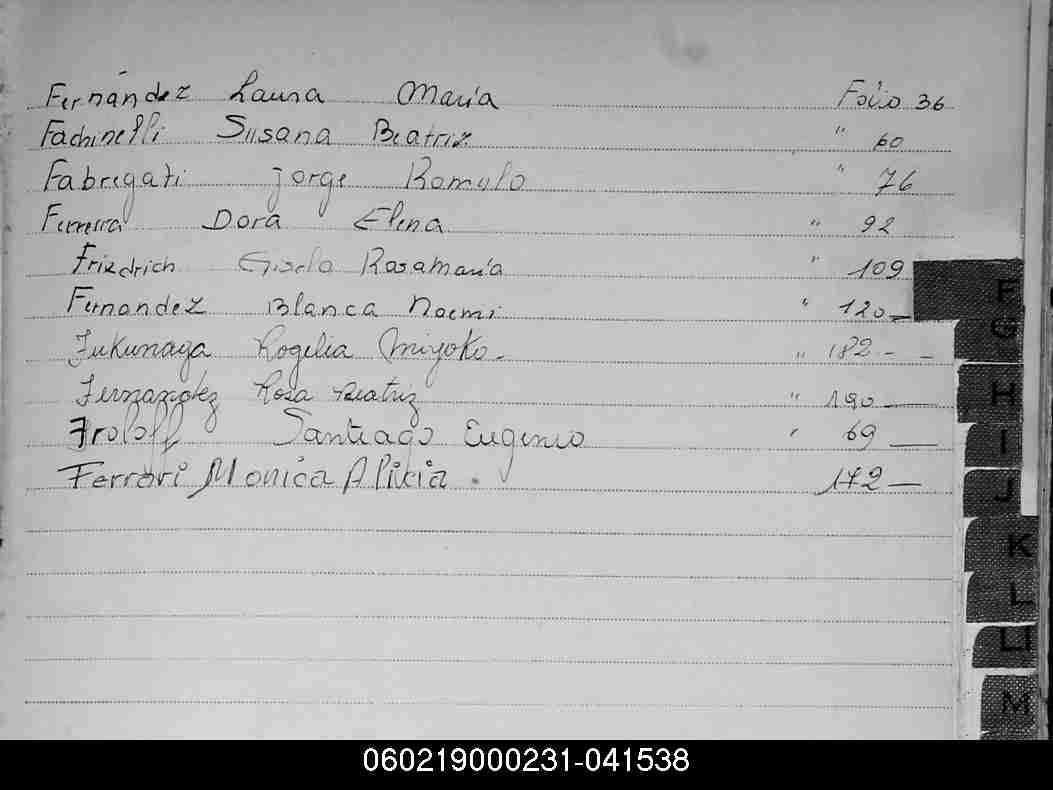 Fernández Laura María Folio 36
Fachinelli Susana Beatriz " 60
Fabregati Jorge Romulo " 76
Ferreira Dora Elena " 92
Friedrich Gisela Rosamaría " 109
Fernandez Blanca Noemi " 120
Fukunaga Rogelia Miyoko - " 182 - -
Fernandez Rosa Beatriz " 190 —
Froloff Santiago Eugenio " 69 —
Ferrari Monica Alicia . 172 —
F
G
H
I
J
K
L
LL
M
060219000231-041538